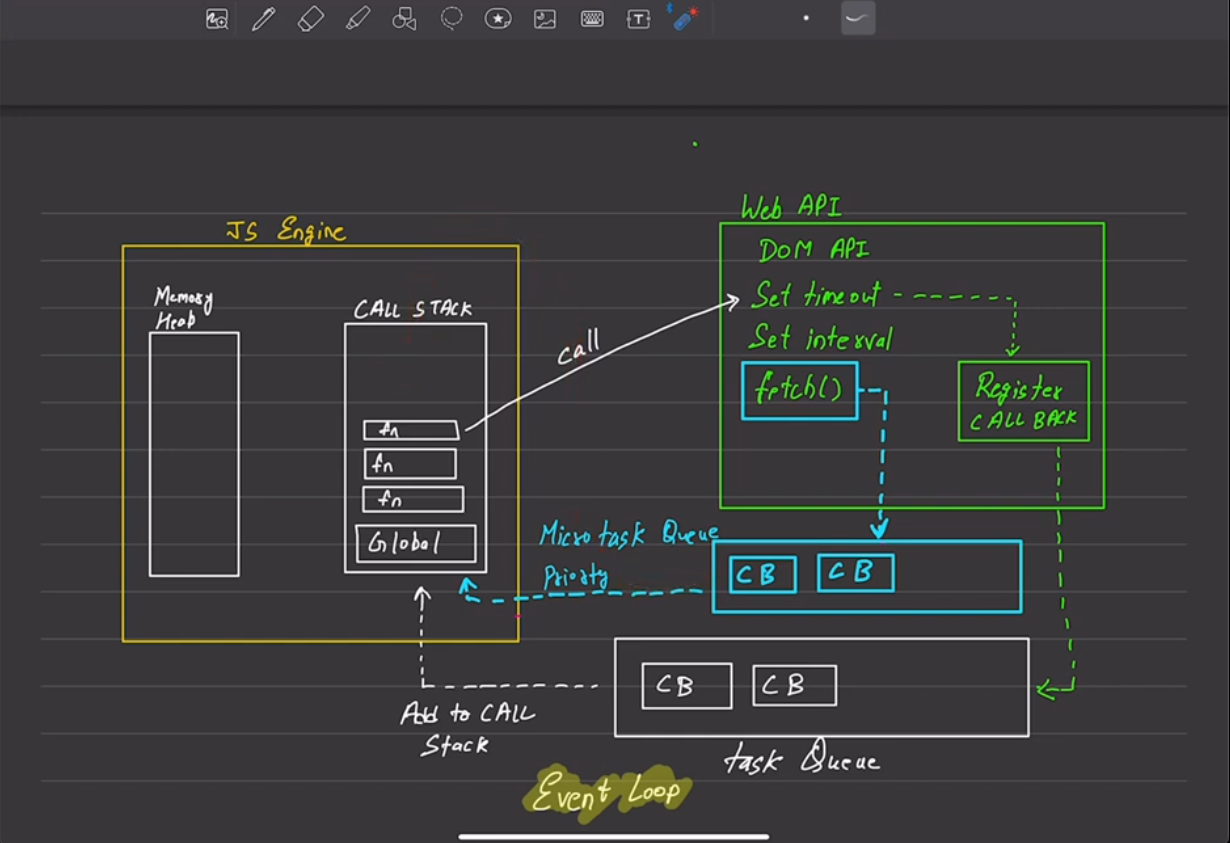 JS Engine
Memory
Heap
CALL STACK
fn
fn
fn
Global
call
Web API
DOM API
Set timeout
Set interval
fetch()
Register
CALL BACK
Microtask Queue
Priority
CB
CB
CB
CB
Add to CALL
Stack
task Queue
Event Loop
T